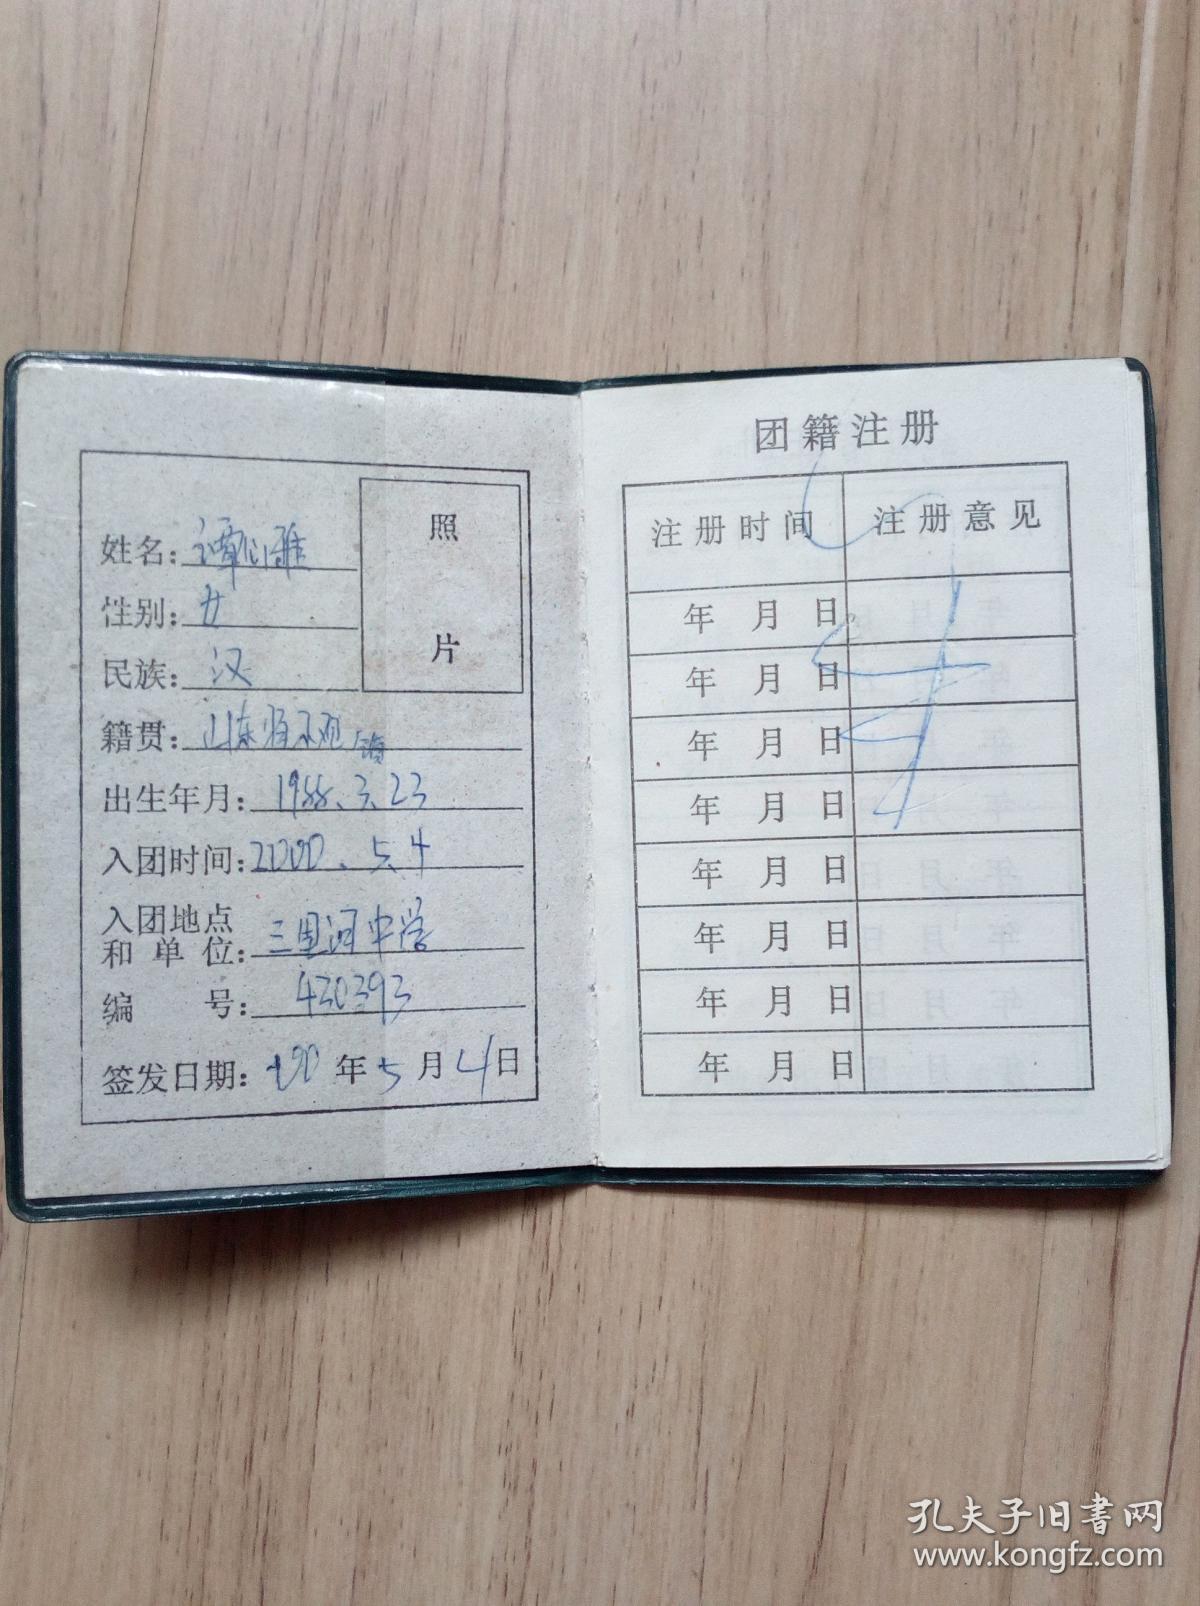 姓名: 谭心雅
照
片
性别: 女
民族: 汉
籍贯: 山东
出生年月: 1988.3.23
入团时间: 2000.5.4
入团地点
和单位: 三里河中学
编号: 430393
签发日期: 年5月4日
团籍注册
注册时间 注册意见
年 月 日
年 月 日
年 月 日
年 月 日
年 月 日
年 月 日
年 月 日
年 月 日
孔夫子旧书网
www.kongfz.com